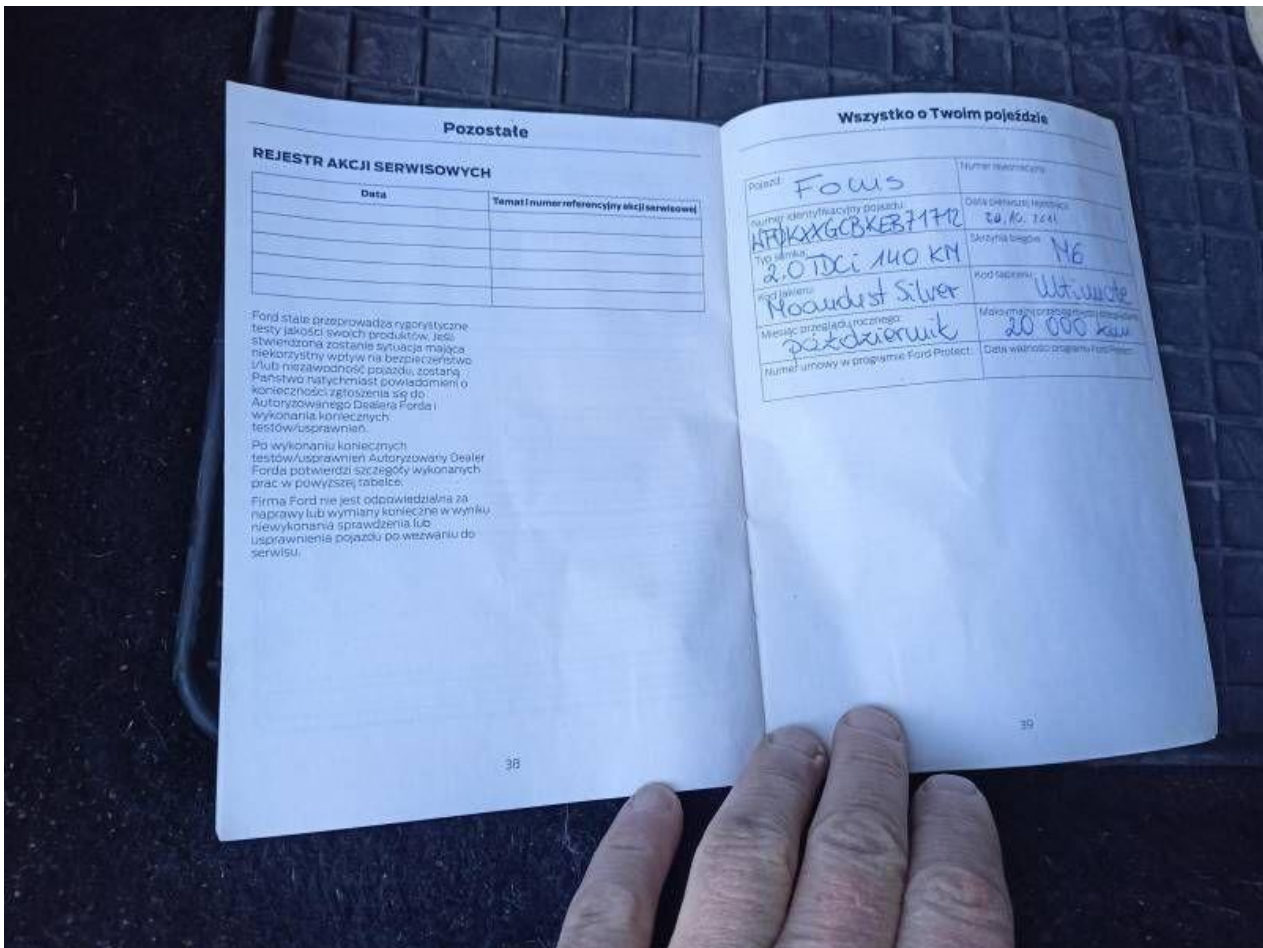 Pozostałe
REJESTR AKCJI SERWISOWYCH
Data Temat i numer referencyjny akcji serwisowej
Ford stale przeprowadza rygorystyczne
testy jakości swoich produktów. Jeśli
stwierdzona zostanie sytuacja mająca
niekorzystny wpływ na bezpieczeństwo
i/lub niezawodność pojazdu, zostaną
Państwo natychmiast powiadomieni o
konieczności zgłoszenia się do
Autoryzowanego Dealera Forda i
wykonania koniecznych
testów/usprawnień.
Po wykonaniu koniecznych
testów/usprawnień Autoryzowany Dealer
Forda potwierdzi szczegóły wykonanych
prac w powyższej tabelce.
Firma Ford nie jest odpowiedzialna za
naprawy lub wymiany konieczne w wyniku
niewykonania sprawdzenia lub
usprawnienia pojazdu po wezwaniu do
serwisu.
38
Wszystko o Twoim pojeździe
Pojazd: Focus
Numer rejestracyjny:
Numer identyfikacyjny pojazdu:
Data pierwszej rejestracji:
Typ silnika: 2.0 TDCi 140 KM
Skrzynia biegów: M6
Kod lakieru: Silver
Kod tapicerki:
Miesiąc przeglądu rocznego: październik
20 000 km
Numer umowy w programie Ford Protect:
Data ważności programu Ford Protect:
39